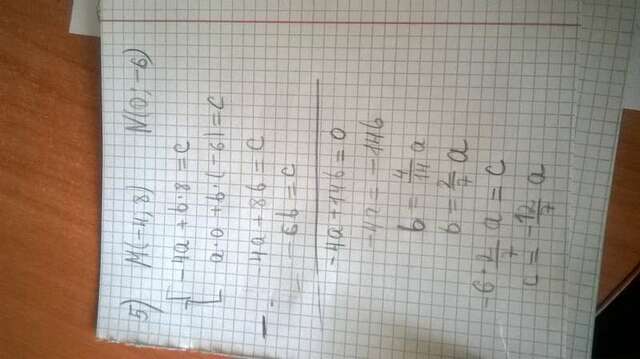 5) M(-4; 8) N(0; -6)
-4a + b·8 = c
a·0 + b·(-6) = c
-4a + 8b = c
-6b = c
-4a + 14b = 0
-4a = -14b
b = 4/14 a
b = 2/7 a
-6 · 2/7 a = c
c = -12/7 a